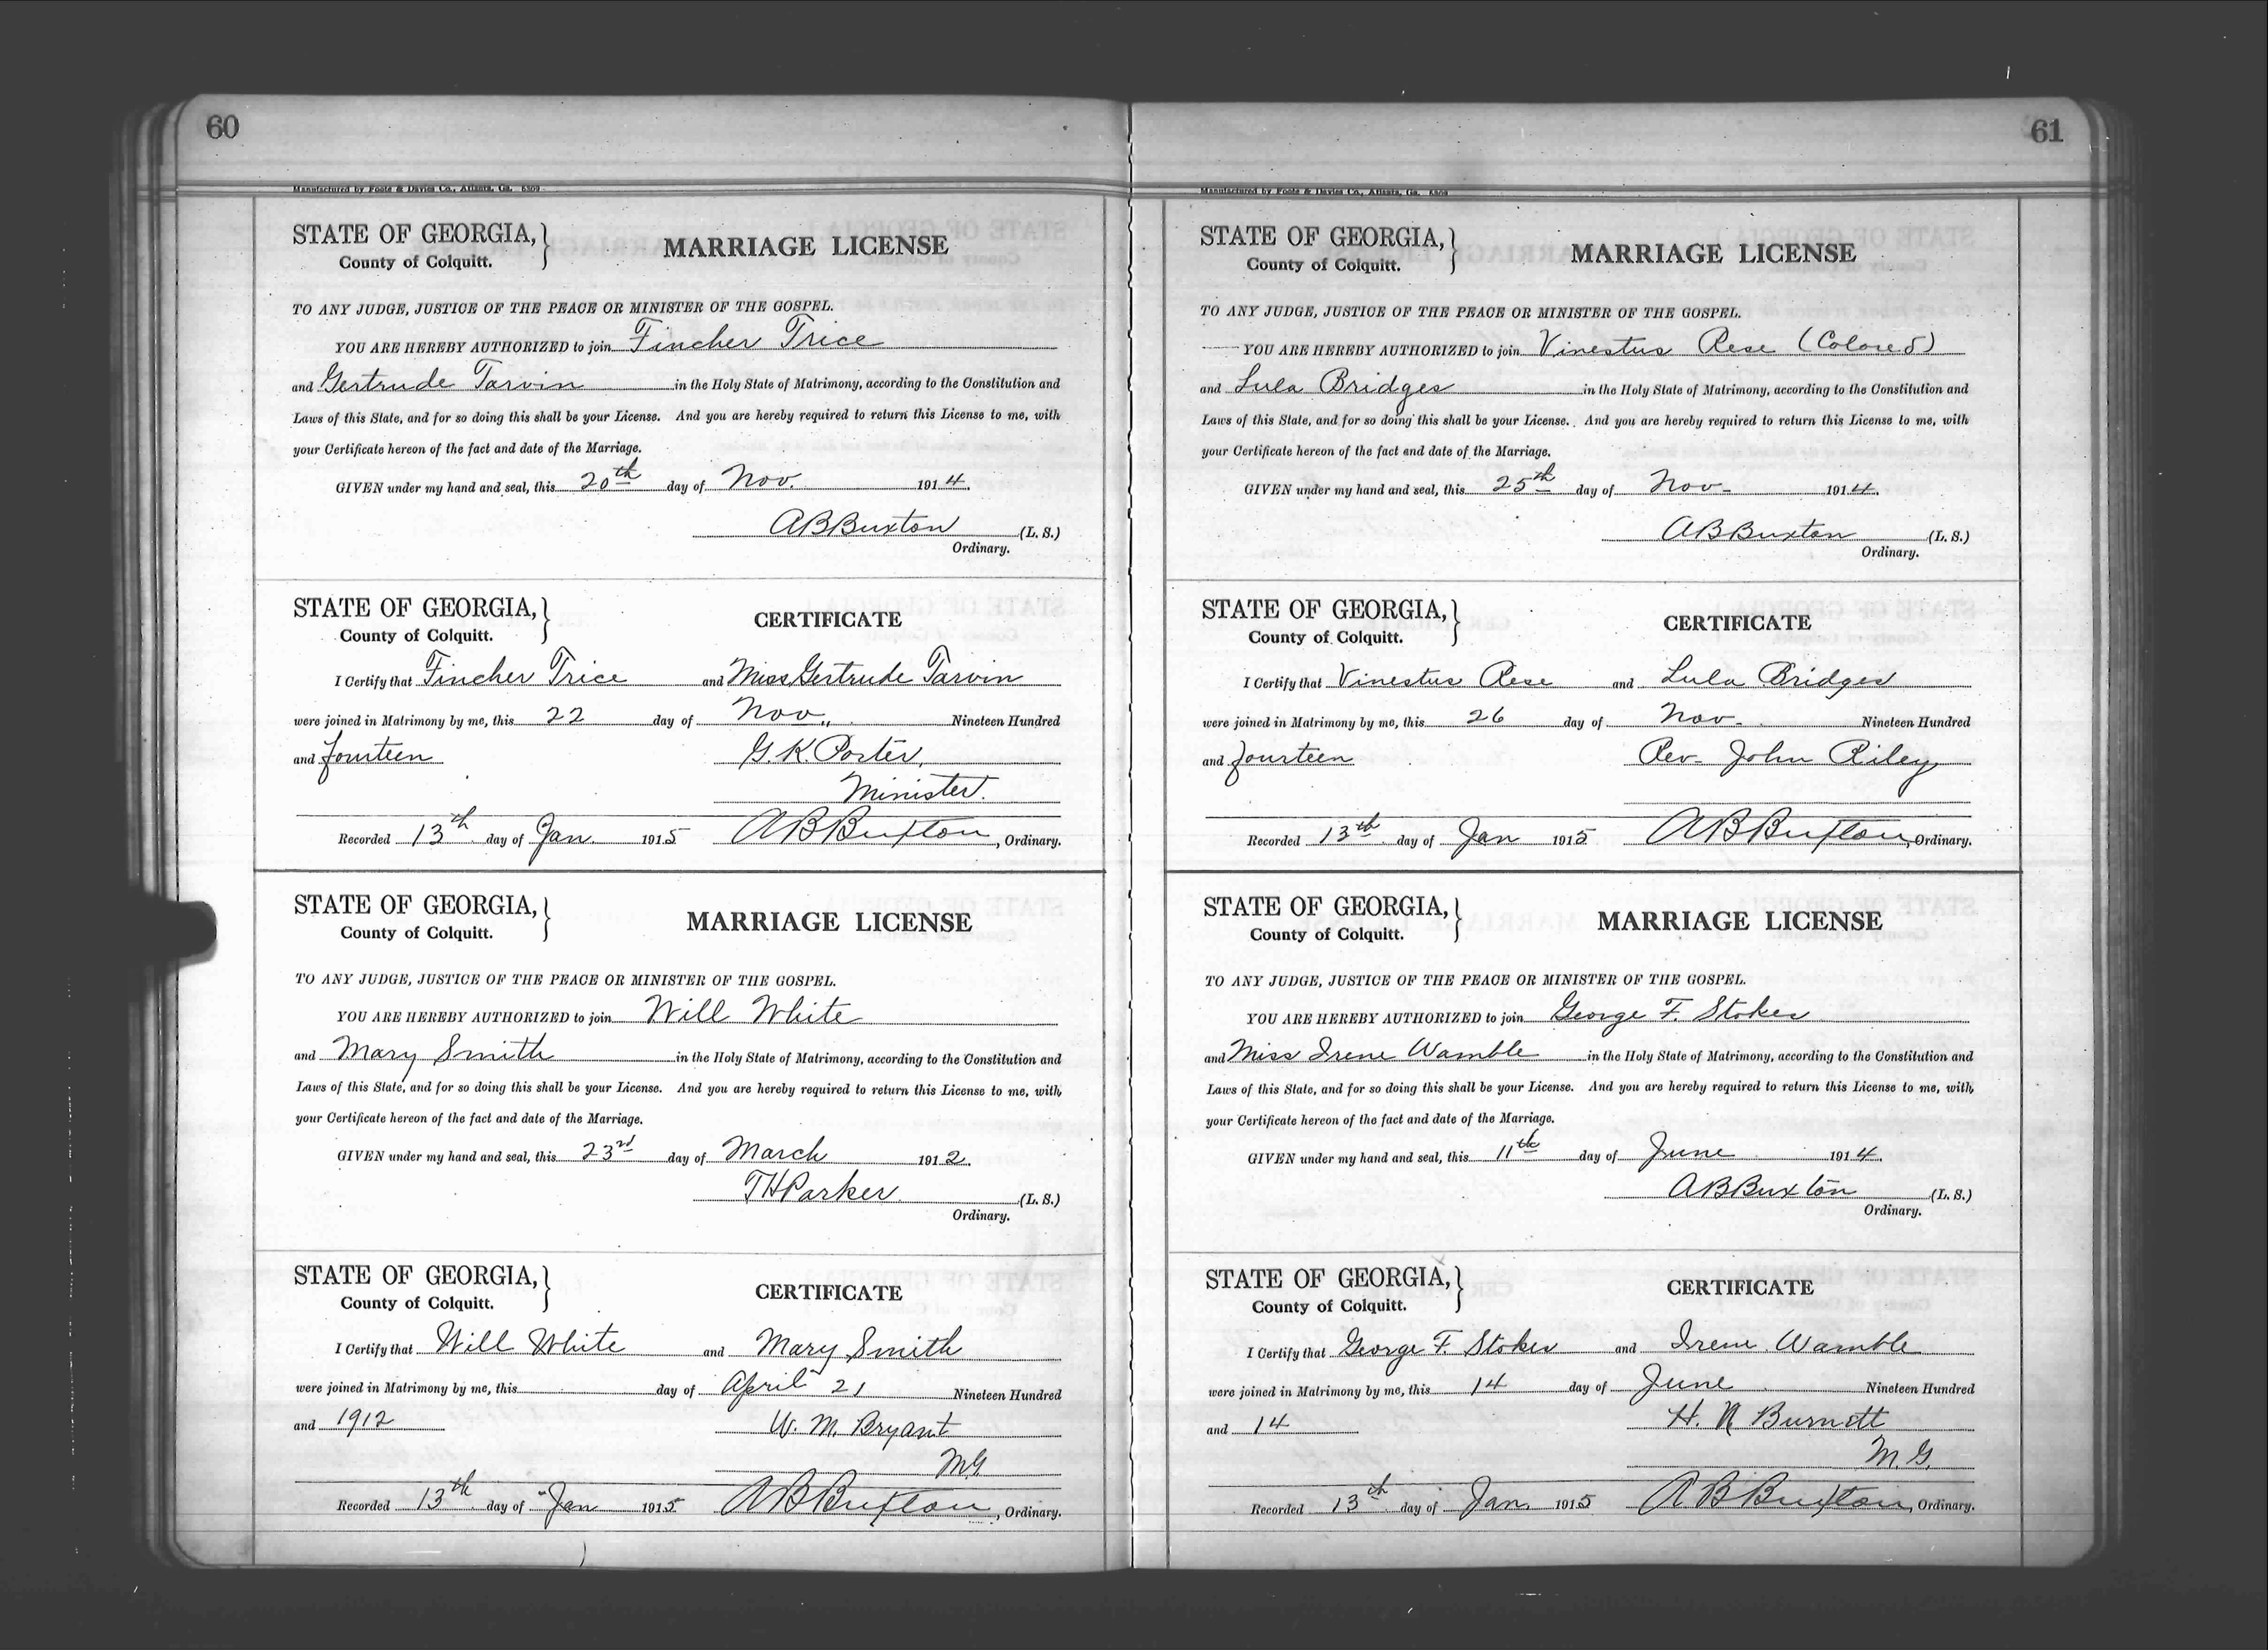 60
Manufactured by Foote & Davies Co., Atlanta, Ga. 8309
STATE OF GEORGIA,
County of Colquitt.
MARRIAGE LICENSE
TO ANY JUDGE, JUSTICE OF THE PEACE OR MINISTER OF THE GOSPEL.
YOU ARE HEREBY AUTHORIZED to join Fincher Trice
and Gertrude Tarvin in the Holy State of Matrimony, according to the Constitution and
Laws of this State, and for so doing this shall be your License. And you are hereby required to return this License to me, with
your Certificate hereon of the fact and date of the Marriage.
GIVEN under my hand and seal, this 20th day of Nov. 1914.
A B Buxton (L. S.)
Ordinary.
STATE OF GEORGIA,
County of Colquitt.
CERTIFICATE
I Certify that Fincher Trice and Miss Gertrude Tarvin
were joined in Matrimony by me, this 22 day of Nov. Nineteen Hundred
and fourteen G. K. Porter,
Minister.
Recorded 13th day of Jan. 1915 A B Buxton, Ordinary.
STATE OF GEORGIA,
County of Colquitt.
MARRIAGE LICENSE
TO ANY JUDGE, JUSTICE OF THE PEACE OR MINISTER OF THE GOSPEL.
YOU ARE HEREBY AUTHORIZED to join Will White
and Mary Smith in the Holy State of Matrimony, according to the Constitution and
Laws of this State, and for so doing this shall be your License. And you are hereby required to return this License to me, with
your Certificate hereon of the fact and date of the Marriage.
GIVEN under my hand and seal, this 23rd day of March 1912.
T H Parker (L. S.)
Ordinary.
STATE OF GEORGIA,
County of Colquitt.
CERTIFICATE
I Certify that Will White and Mary Smith
were joined in Matrimony by me, this day of April 21 Nineteen Hundred
and 1912 W. M. Bryant
MG
Recorded 13th day of Jan 1915 A B Buxton, Ordinary.
61
Manufactured by Foote & Davies Co., Atlanta, Ga.
STATE OF GEORGIA,
County of Colquitt.
MARRIAGE LICENSE
TO ANY JUDGE, JUSTICE OF THE PEACE OR MINISTER OF THE GOSPEL.
YOU ARE HEREBY AUTHORIZED to join Vinestus Rese (Colored)
and Lula Bridges in the Holy State of Matrimony, according to the Constitution and
Laws of this State, and for so doing this shall be your License. And you are hereby required to return this License to me, with
your Certificate hereon of the fact and date of the Marriage.
GIVEN under my hand and seal, this 25th day of Nov- 1914.
A B Buxton (L. S.)
Ordinary.
STATE OF GEORGIA,
County of Colquitt.
CERTIFICATE
I Certify that Vinestus Rese and Lula Bridges
were joined in Matrimony by me, this 26 day of Nov- Nineteen Hundred
and fourteen Rev- John Riley
Recorded 13th day of Jan 1915 A B Buxton, Ordinary.
STATE OF GEORGIA,
County of Colquitt.
MARRIAGE LICENSE
TO ANY JUDGE, JUSTICE OF THE PEACE OR MINISTER OF THE GOSPEL.
YOU ARE HEREBY AUTHORIZED to join George F. Stokes
and Miss Irene Wamble in the Holy State of Matrimony, according to the Constitution and
Laws of this State, and for so doing this shall be your License. And you are hereby required to return this License to me, with
your Certificate hereon of the fact and date of the Marriage.
GIVEN under my hand and seal, this 11th day of June 1914.
A B Buxton (L. S.)
Ordinary.
STATE OF GEORGIA,
County of Colquitt.
CERTIFICATE
I Certify that George F. Stokes and Irene Wamble
were joined in Matrimony by me, this 14 day of June Nineteen Hundred
and 14 H. N Burnett
M. G.
Recorded 13th day of Jan. 1915 A B Buxton, Ordinary.